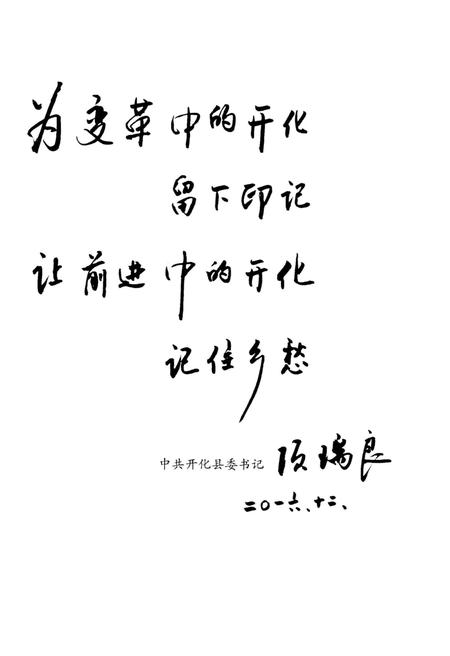 为变革中的开化
留下印记
让前进中的开化
记住乡愁
中共开化县委书记 项瑞良
二〇一六、十二、